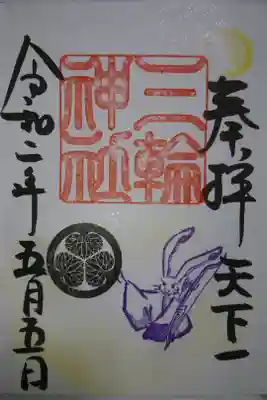 奉拝 天下一
三輪
神社
令和二年五月五日